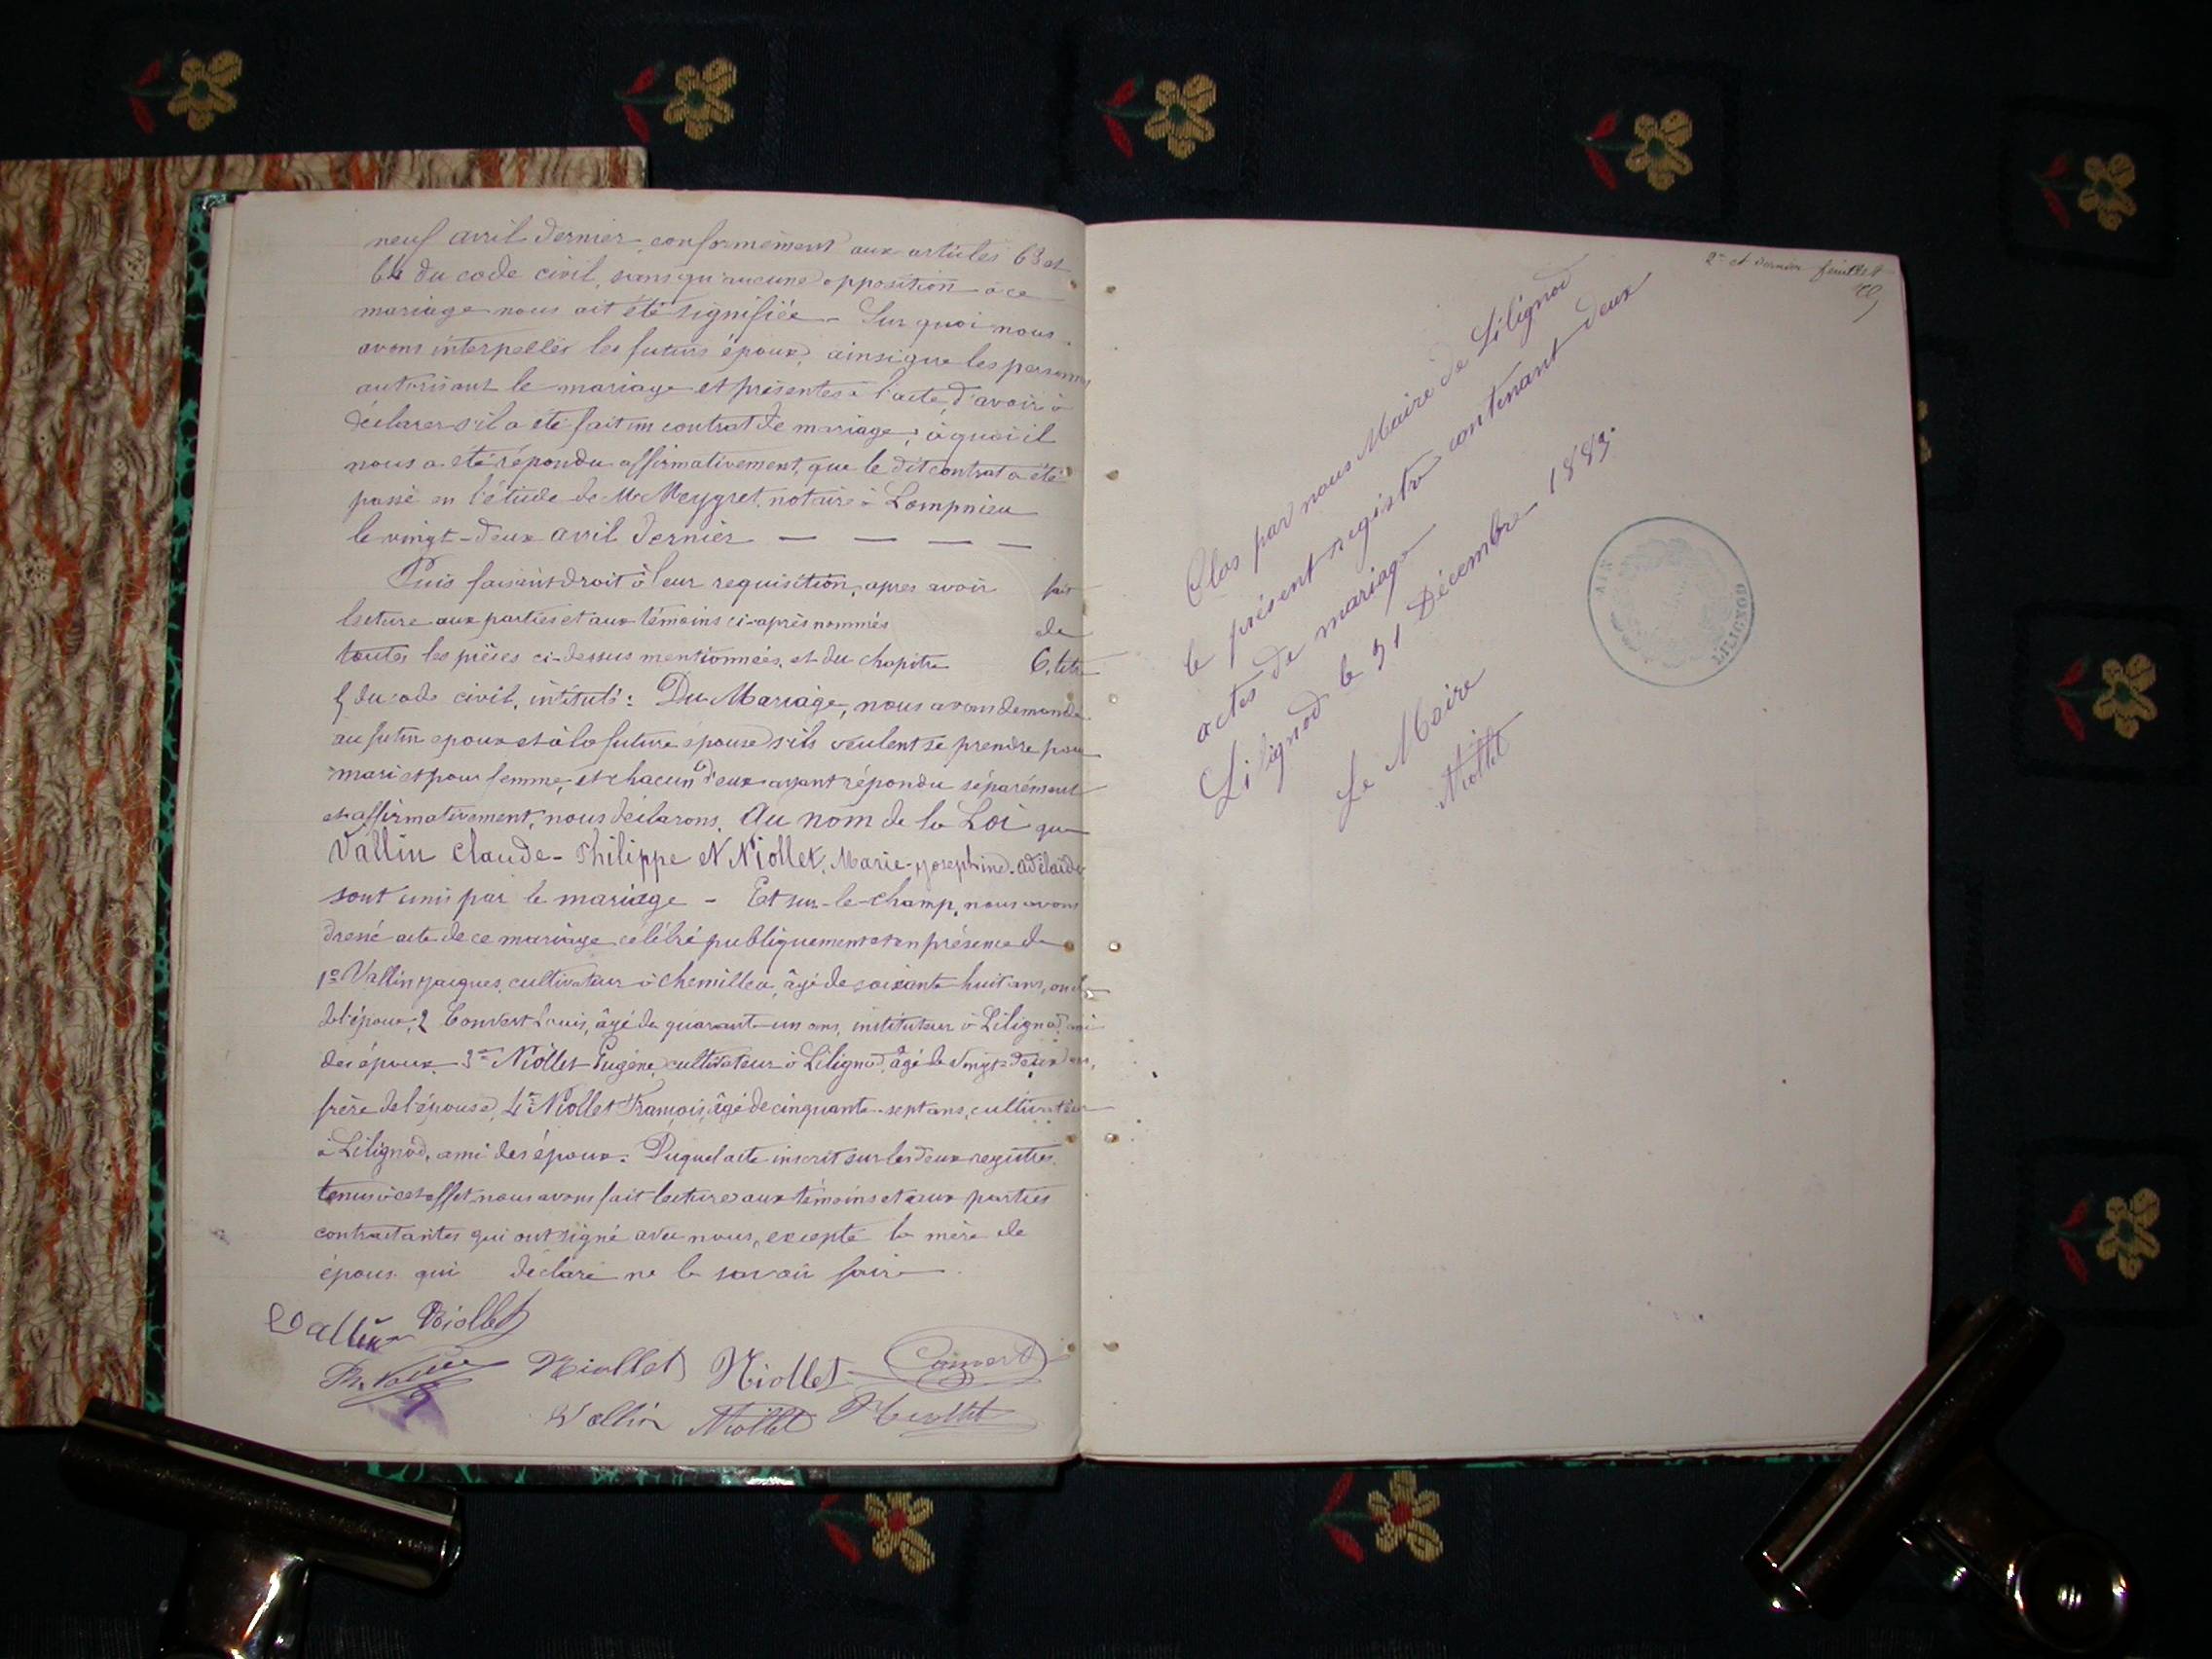 neuf avril dernier, conformément aux articles 63 et
64 du code civil, sans qu'aucune opposition à ce
mariage nous ait été signifiée - Sur quoi nous
avons interpellés les futurs époux, ainsi que les personnes
autorisant le mariage et présentes à l'acte, d'avoir à
déclarer s'il a été fait un contrat de mariage, à quoi il
nous a été répondu affirmativement, que le dit contrat a été
passé en l'étude de Me Meygret, notaire à Lompnieu
le vingt-deux avril dernier — — — —
Puis faisant droit à leur requisition, apres avoir fait
lecture aux parties et aux témoins ci-après nommés de
toutes les pièces ci-dessus mentionnées, et du chapitre 6, titre
5 du code civil, intitulé : Du Mariage, nous avons demandé
au futur epoux et à la future épouse s'ils veulent se prendre pour
mari et pour femme, et chacun d'eux ayant répondu séparément
et affirmativement, nous déclarons, Au nom de la Loi que
Vallin Claude-Philippe et Niollet, Marie-Josephine-Adélaïde
sont unis par le mariage - Et sur-le-champ, nous avons
dressé acte de ce mariage célébré publiquement et en présence de
1º Vallin Jacques, cultivateur à Chemillieu, âgé de soixante huit ans, oncle
de l'époux, 2 Convert Louis, âgé de quarante-un ans, instituteur à Lilignod, ami
des époux 3º Niollet Eugène, cultivateur à Lilignod, âgé de vingt-deux ans,
frère de l'épouse, 4º Niollet François, âgé de cinquante-sept ans, cultivateur
à Lilignod, ami des époux. Duquel acte inscrit sur les deux registres
tenus à cet effet nous avons fait lecture aux témoins et aux parties
contractantes qui ont signé avec nous, excepté la mère de
époux qui déclaré ne le savoir faire
Vallin Niollet
Niollet Niollet Convert
Vallin Niollet Niollet
2e et dernier feuillet
Clos par nous Maire de Lilignod
le présent registre contenant deux
actes de mariage
Lilignod le 31 Décembre 1889
Le Maire
Niollet
AIN
LILIGNOD